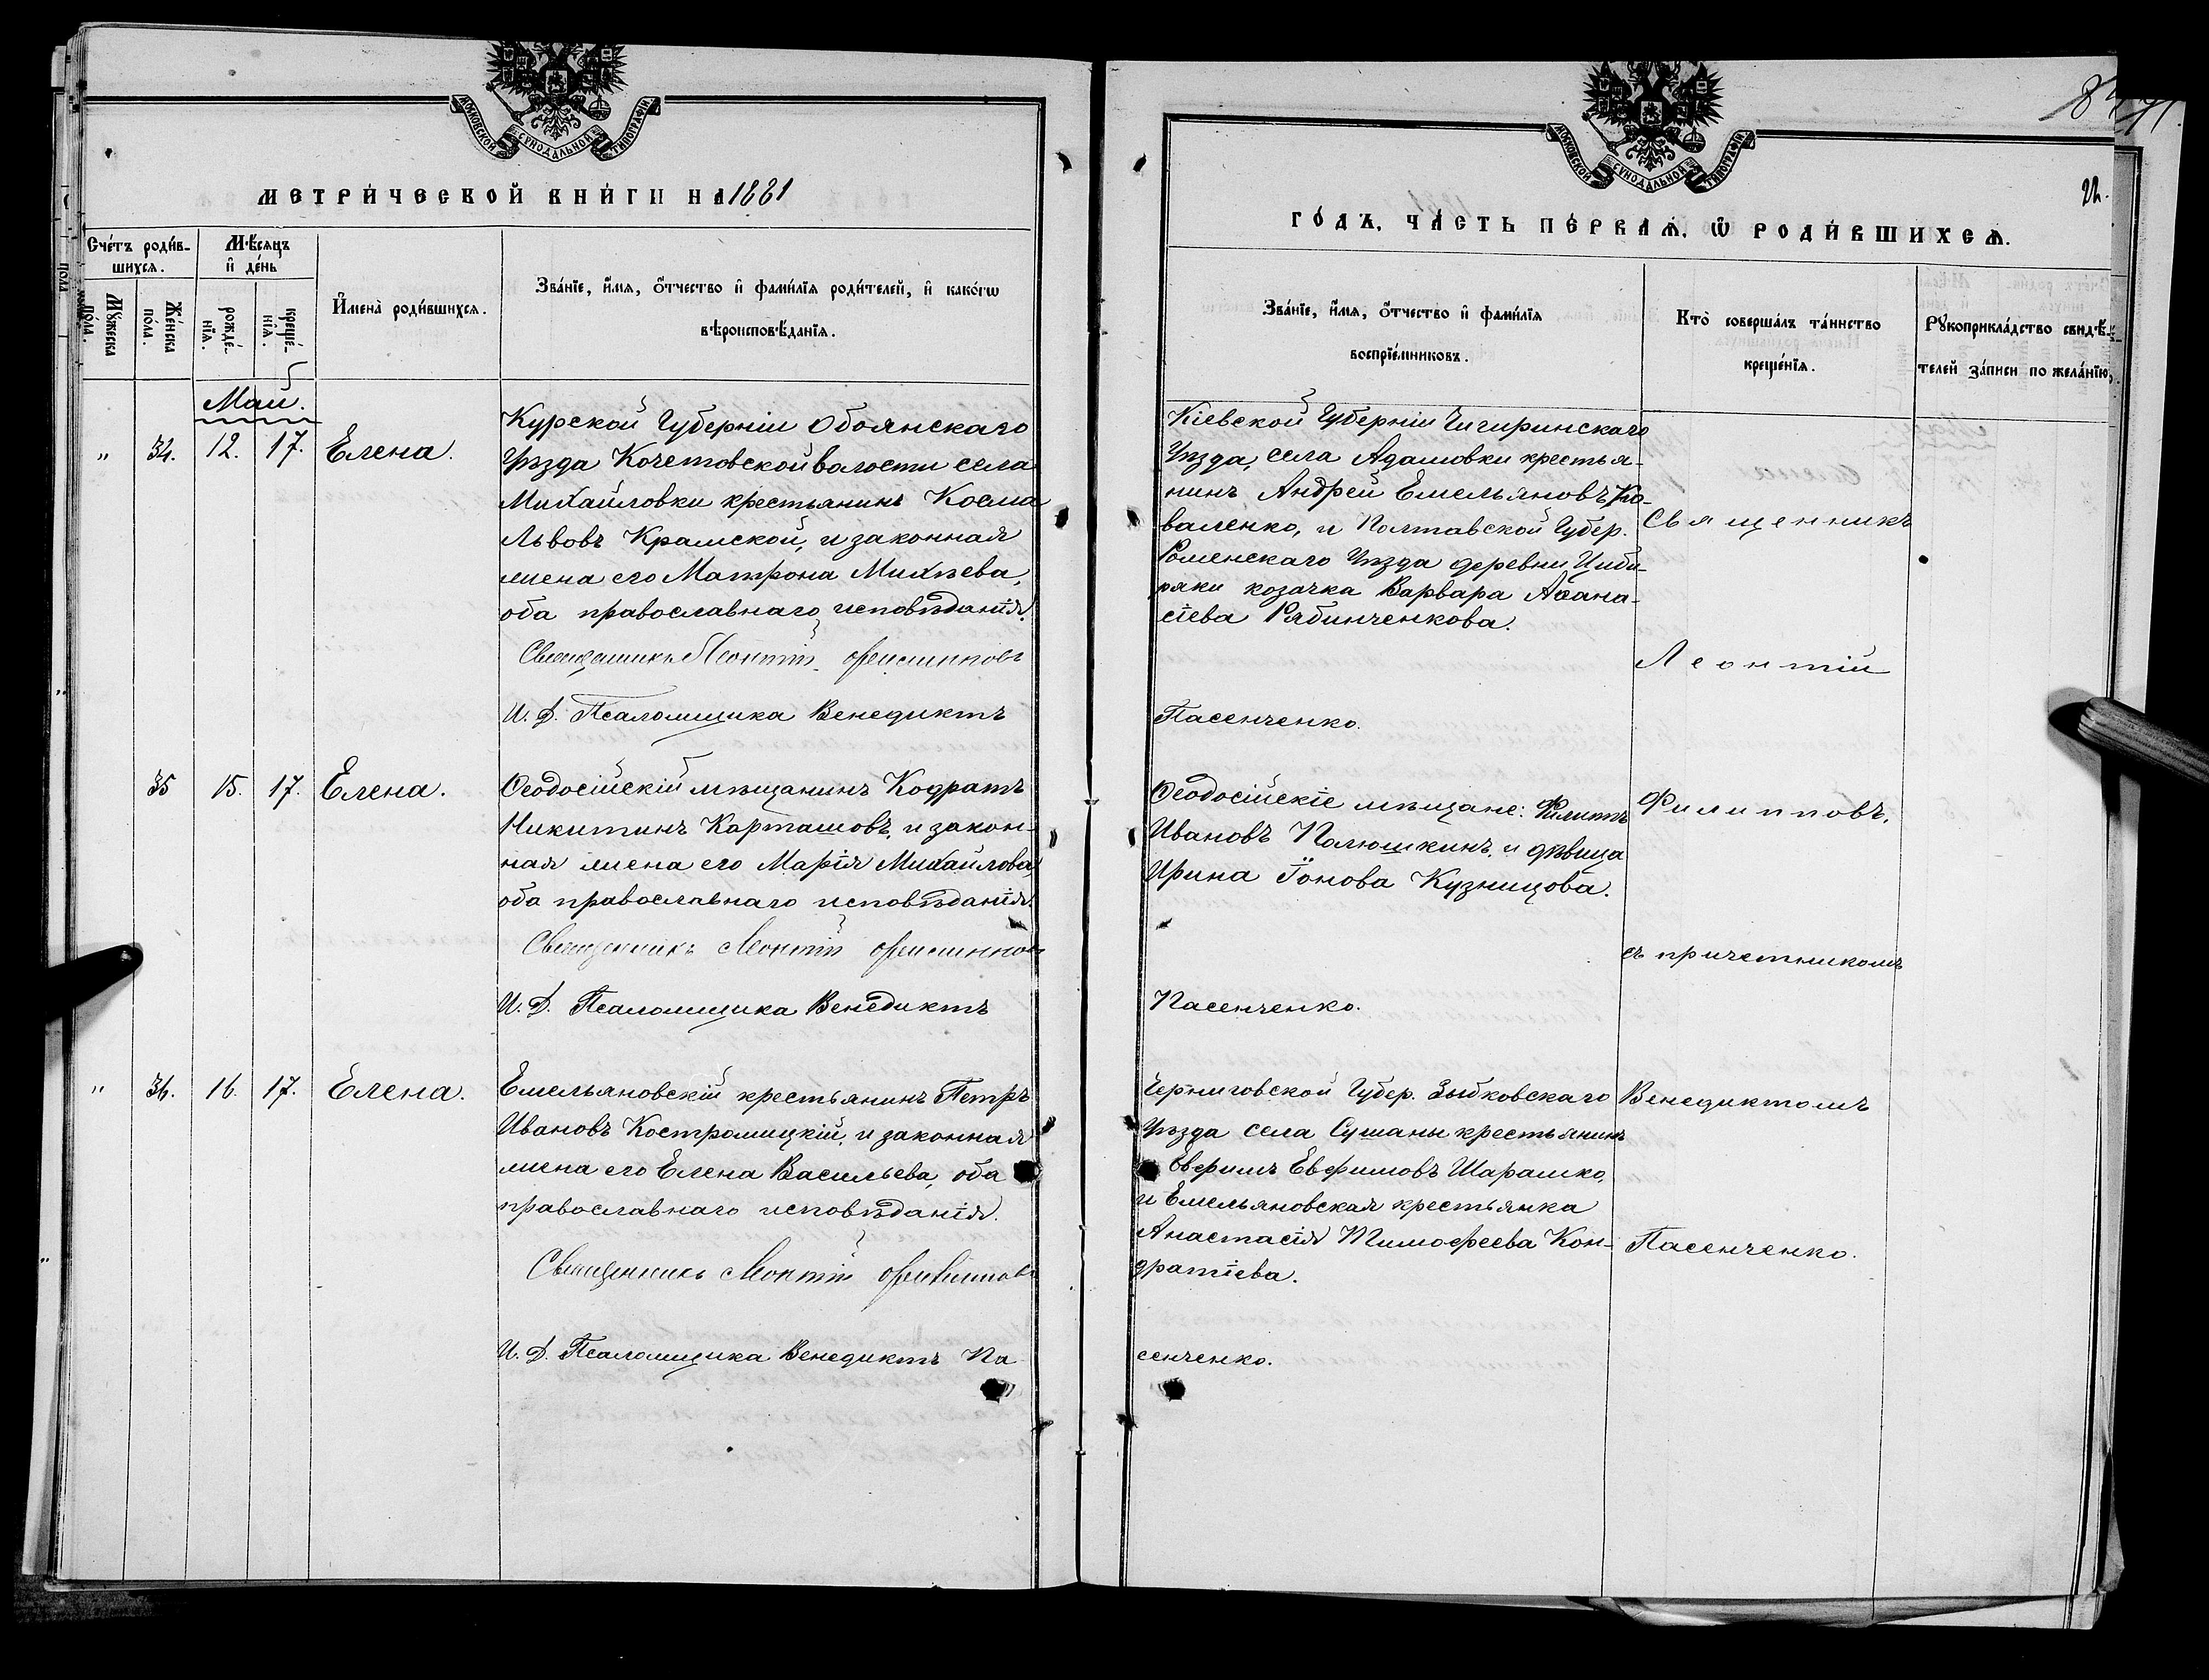 МОСКОВСКОЙ СУНОДАЛЬНОЙ ТИПОГРАФІИ
МЕТРИ́ЧЕСКОЙ КНИ́ГИ НА 1881
Сче́тъ роди́в-
шихсѧ.
Мѣ́сѧцъ
и҆ де́нь
Мꙋ́жеска
по́ла.
Же́нска
по́ла.
рожде́-
нїѧ.
креще́-
нїѧ.
И҆мена̀ роди́вшихсѧ.
Зва́нїе, и҆́мѧ, ѻ҆́тчество и҆ фами́лїѧ роди́телей, и҆ како́гѡ
вѣроисповѣ́данїѧ.
Май.
" 34. 12. 17. Елена.
Курской Губерніи Обоянскаго
Уѣзда Кочетовской волости села
Михайловки крестьянинъ Косма
Львовъ Крамской, и законная
жена его Матрона Михѣева,
оба православнаго исповѣданія.
Священникъ Леонтій Филипповъ
И. Д. Псаломщика Венедиктъ
35 15. 17. Елена.
Ѳеодосійскій мѣщанинъ Кодратъ
Никитинъ Карташовъ, и закон-
ная жена его Марія Михайлова,
оба православнаго исповѣданія.
Священникъ Леонтій Филипповъ
И. Д. Псаломщика Венедиктъ
" 36. 16. 17. Елена.
Емельяновскій крестьянинъ Петръ
Ивановъ Костромицкій, и законная
жена его Елена Васильева, оба
православнаго исповѣданія.
Священникъ Леонтій Филипповъ
И. Д. Псаломщика Венедиктъ Па
МОСКОВСКОЙ СУНОДАЛЬНОЙ ТИПОГРАФІИ
22.
ГО́ДЪ, ЧА́СТЬ ПЕ́РВАѦ, Ѡ҆ РОДИ́ВШИХСѦ.
Зва́нїе, и҆́мѧ, ѻ҆́тчество и҆ фами́лїѧ
воспрїе́мниковъ.
Кто̀ соверша́лъ та́инство
креще́нїѧ.
Рꙋкоприкла́дство свидѣ́-
телей за́писи по жела́нїю.
Кіевской Губерніи Чигиринскаго
Уѣзда, села Адамовки крестья-
нинъ Андрей Емельяновъ Ко-
валенко, и Полтавской Губер.
Роменскаго Уѣзда деревни Циби-
ряки козачка Варвара Аѳана-
сіева Рябинченкова.
Священникъ
Леонтій
Пасенченко.
Ѳеодосійскіе мѣщане: Филиппъ
Ивановъ Полюшкинъ, и дѣвица
Ирина Іонова Кузницова.
Филипповъ,
съ причетникомъ
Пасенченко.
Черниговской Губер. Зыбковскаго
Уѣзда села Сушаны крестьянинъ
Евфимъ Евфимовъ Шарамко,
и Емельяновская крестьянка
Анастасія Тимофеева Кон-
дратіева.
Венедиктомъ
Пасенченко.
сенченко.